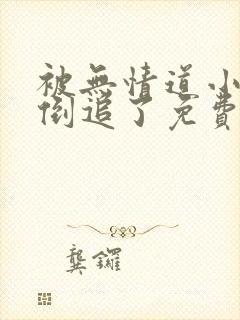 被無情道小
倒追了免費
龔鑼